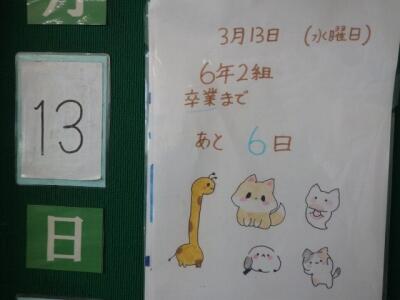 月
13
日
3月13日 (水曜日)
6年2組
卒業まで
あと 6日